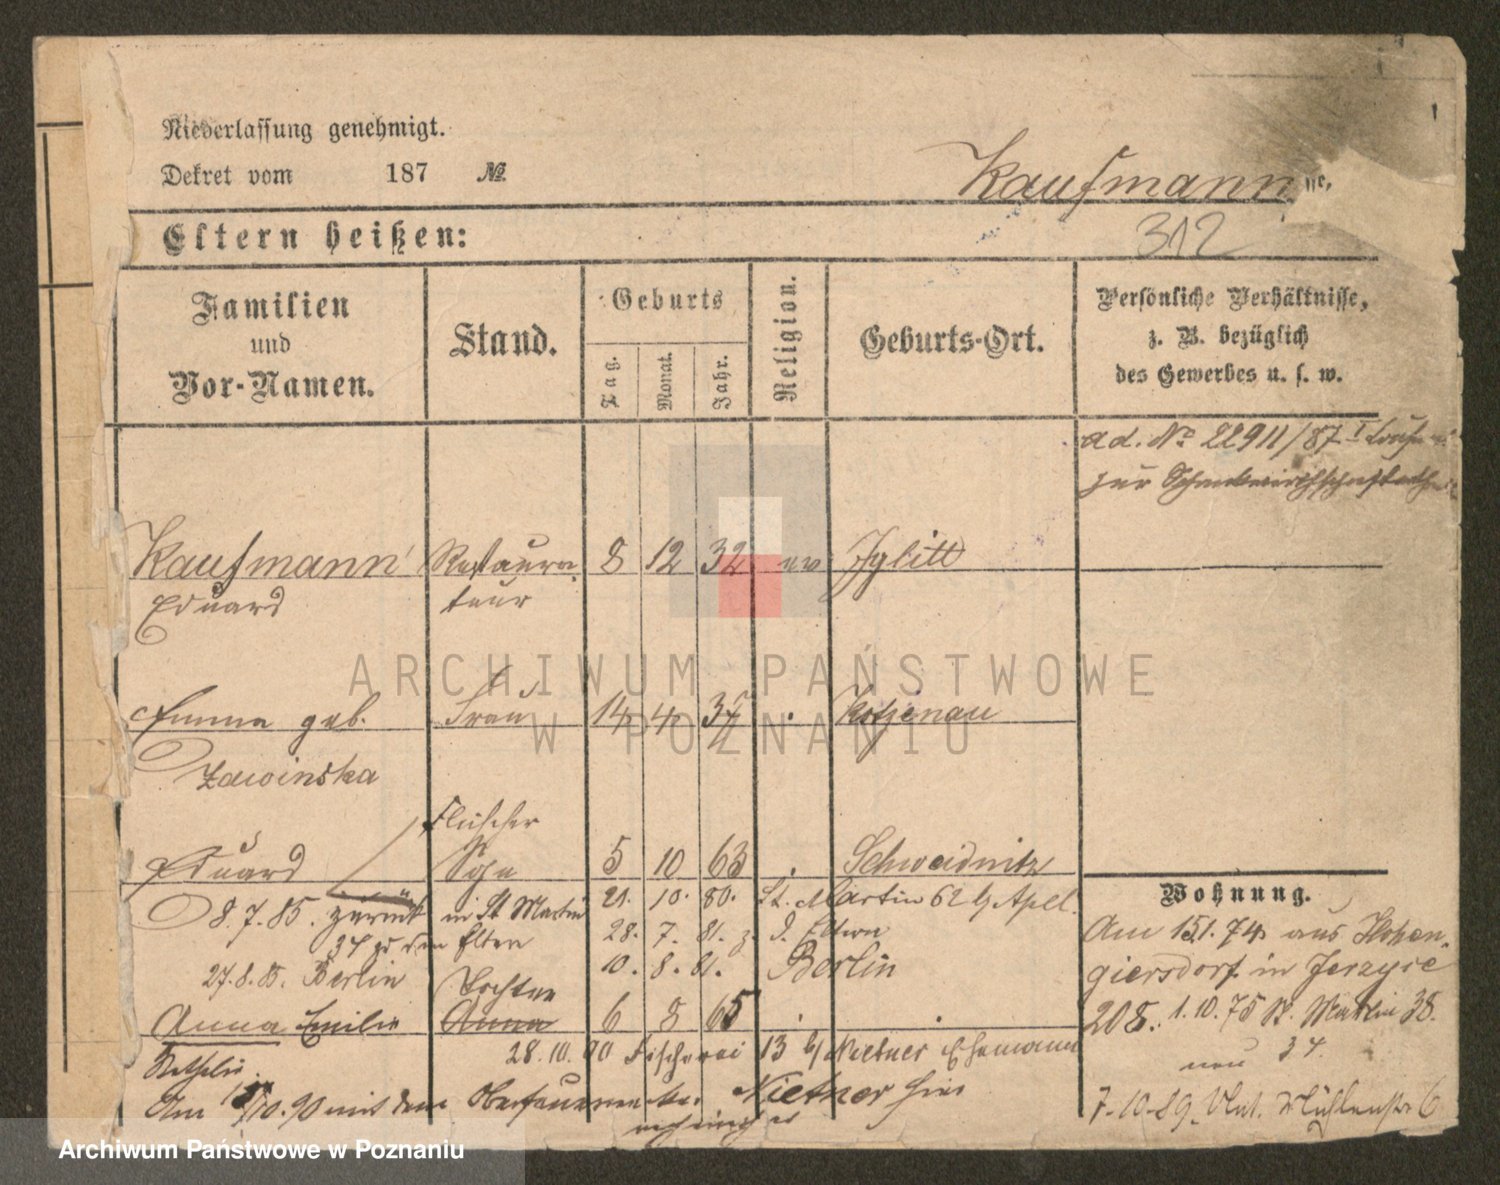 Niederlassung genehmigt.
Dekret vom 187 №
Kaufmann
sse,
312
Eltern heißen:
Familien und Vor-Namen.
Stand.
Geburts
Tag. Monat. Jahr.
Religion.
Geburts-Ort.
Persönliche Verhältnisse, z. B. bezüglich des Gewerbes u. s. w.
ad. No 22911/87 I
zur
Kaufmann Restaura 8 12 32 ev Jglitt
Eduard teur
Emma geb. Frau 14 4 37 Kotzenau
Zawinska
Fleischer
Eduard Sohn 5 10 63 . Schweidnitz
Wohnung.
8.7.85. zurück in St Martin 21. 10. 80. St. Martin 62 b/ Apel.
34 zu den Eltern 28. 7. 81. z. d. Eltern
27.8.85. Berlin 10. 8. 81. Berlin
Am 15.1.74 aus Hohen-
giersdorf in Jerzyce
Tochter
Anna Emilie Anna 6 8 65 . .
208. 1.10.75 St. Martin 38.
neu 34.
28.10.90 Fischerei 13 b/ Nietner Ehemann
Am 10.90 mit dem Nietner hier
7.10.89. Mühlenstr 6
ARCHIWUM PAŃSTWOWE
W POZNANIU
Archiwum Państwowe w Poznaniu